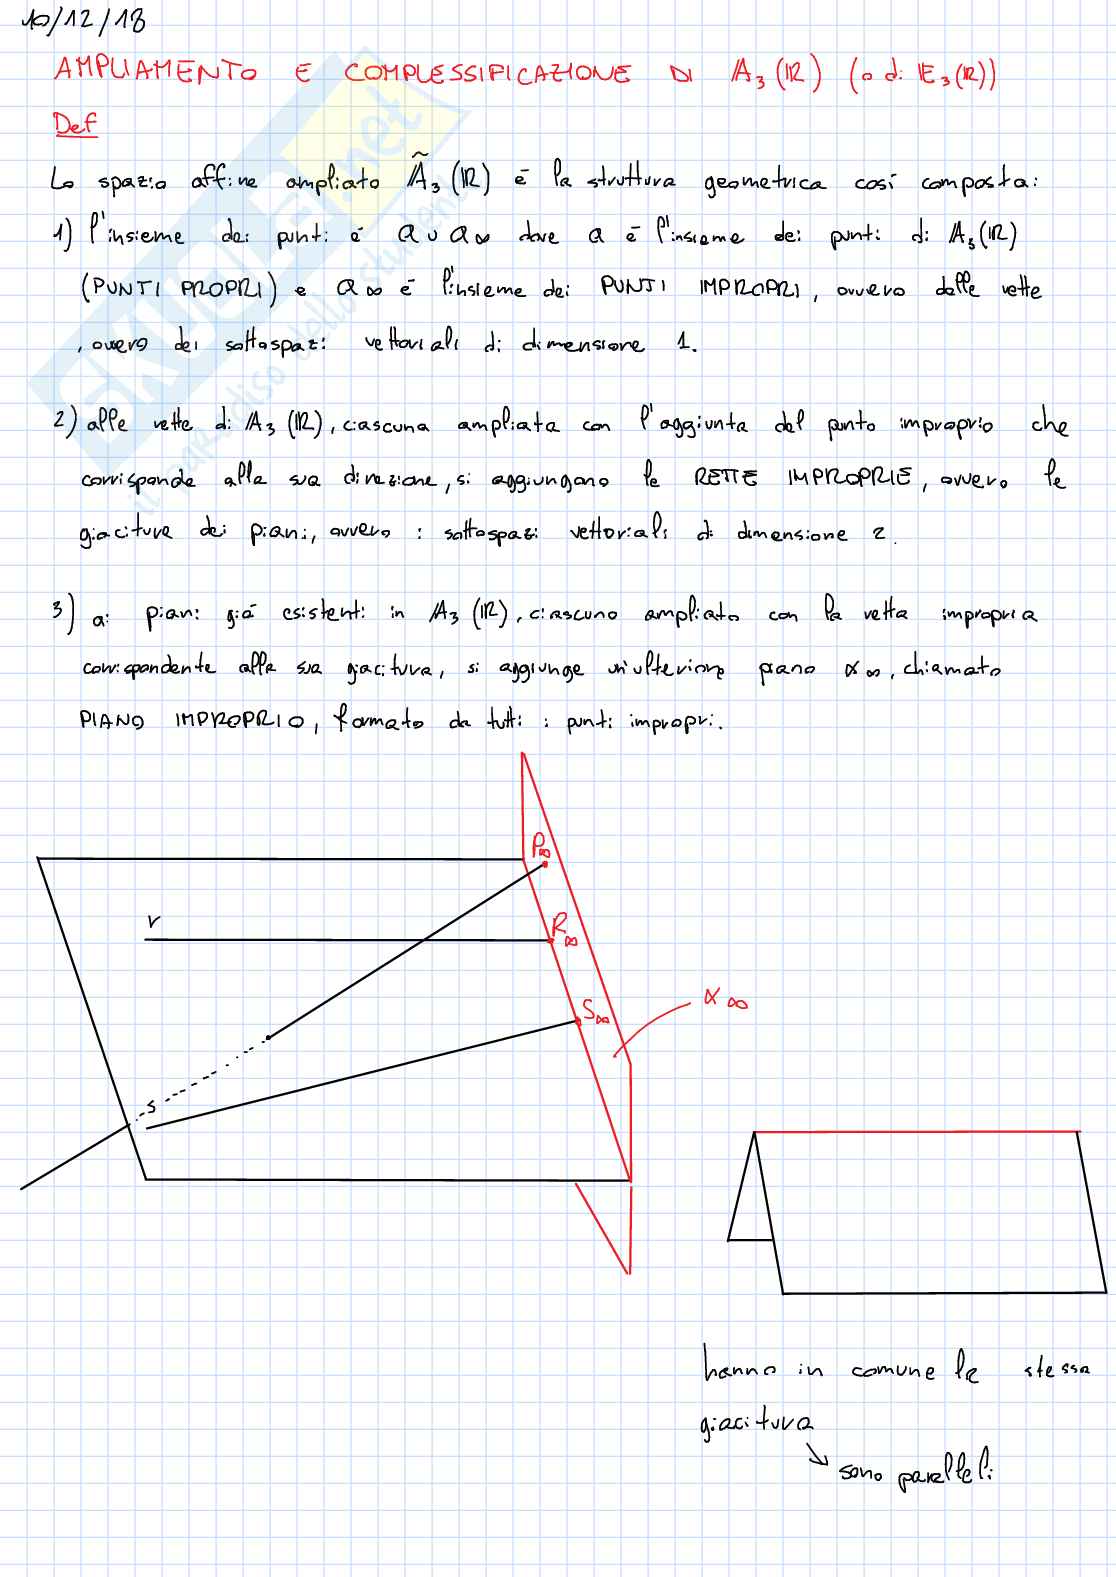 10/12/18
AMPLIAMENTO E COMPLESSIFICAZIONE DI A₃(R) (o di E₃(R))
Def
Lo spazio affine ampliato Ã₃(R) é la struttura geometrica così composta:
1) l'insieme dei punti é a ∪ a∞ dove a é l'insieme dei punti di A₃(R)
(PUNTI PROPRI) e a∞ é l'insieme dei PUNTI IMPROPRI, ovvero delle rette
, ovvero dei sottospazi vettoriali di dimensione 1.
2) alle rette di A₃(R), ciascuna ampliata con l'aggiunta del punto improprio che
corrisponde alla sua direzione, si aggiungono le RETTE IMPROPRIE, ovvero le
giaciture dei piani, ovvero i sottospazi vettoriali di dimensione 2.
3) ai piani giá esistenti in A₃(R), ciascuno ampliato con la retta impropria
corrispondente alla sua giacitura, si aggiunge un'ulteriore piano α∞, chiamato
PIANO IMPROPRIO, formato da tutti i punti impropri.
P∞
r
R∞
S∞
α∞
s
hanno in comune la stessa
giacitura
↘ sono paralleli
SKUOLA.net
il paradiso dello studente